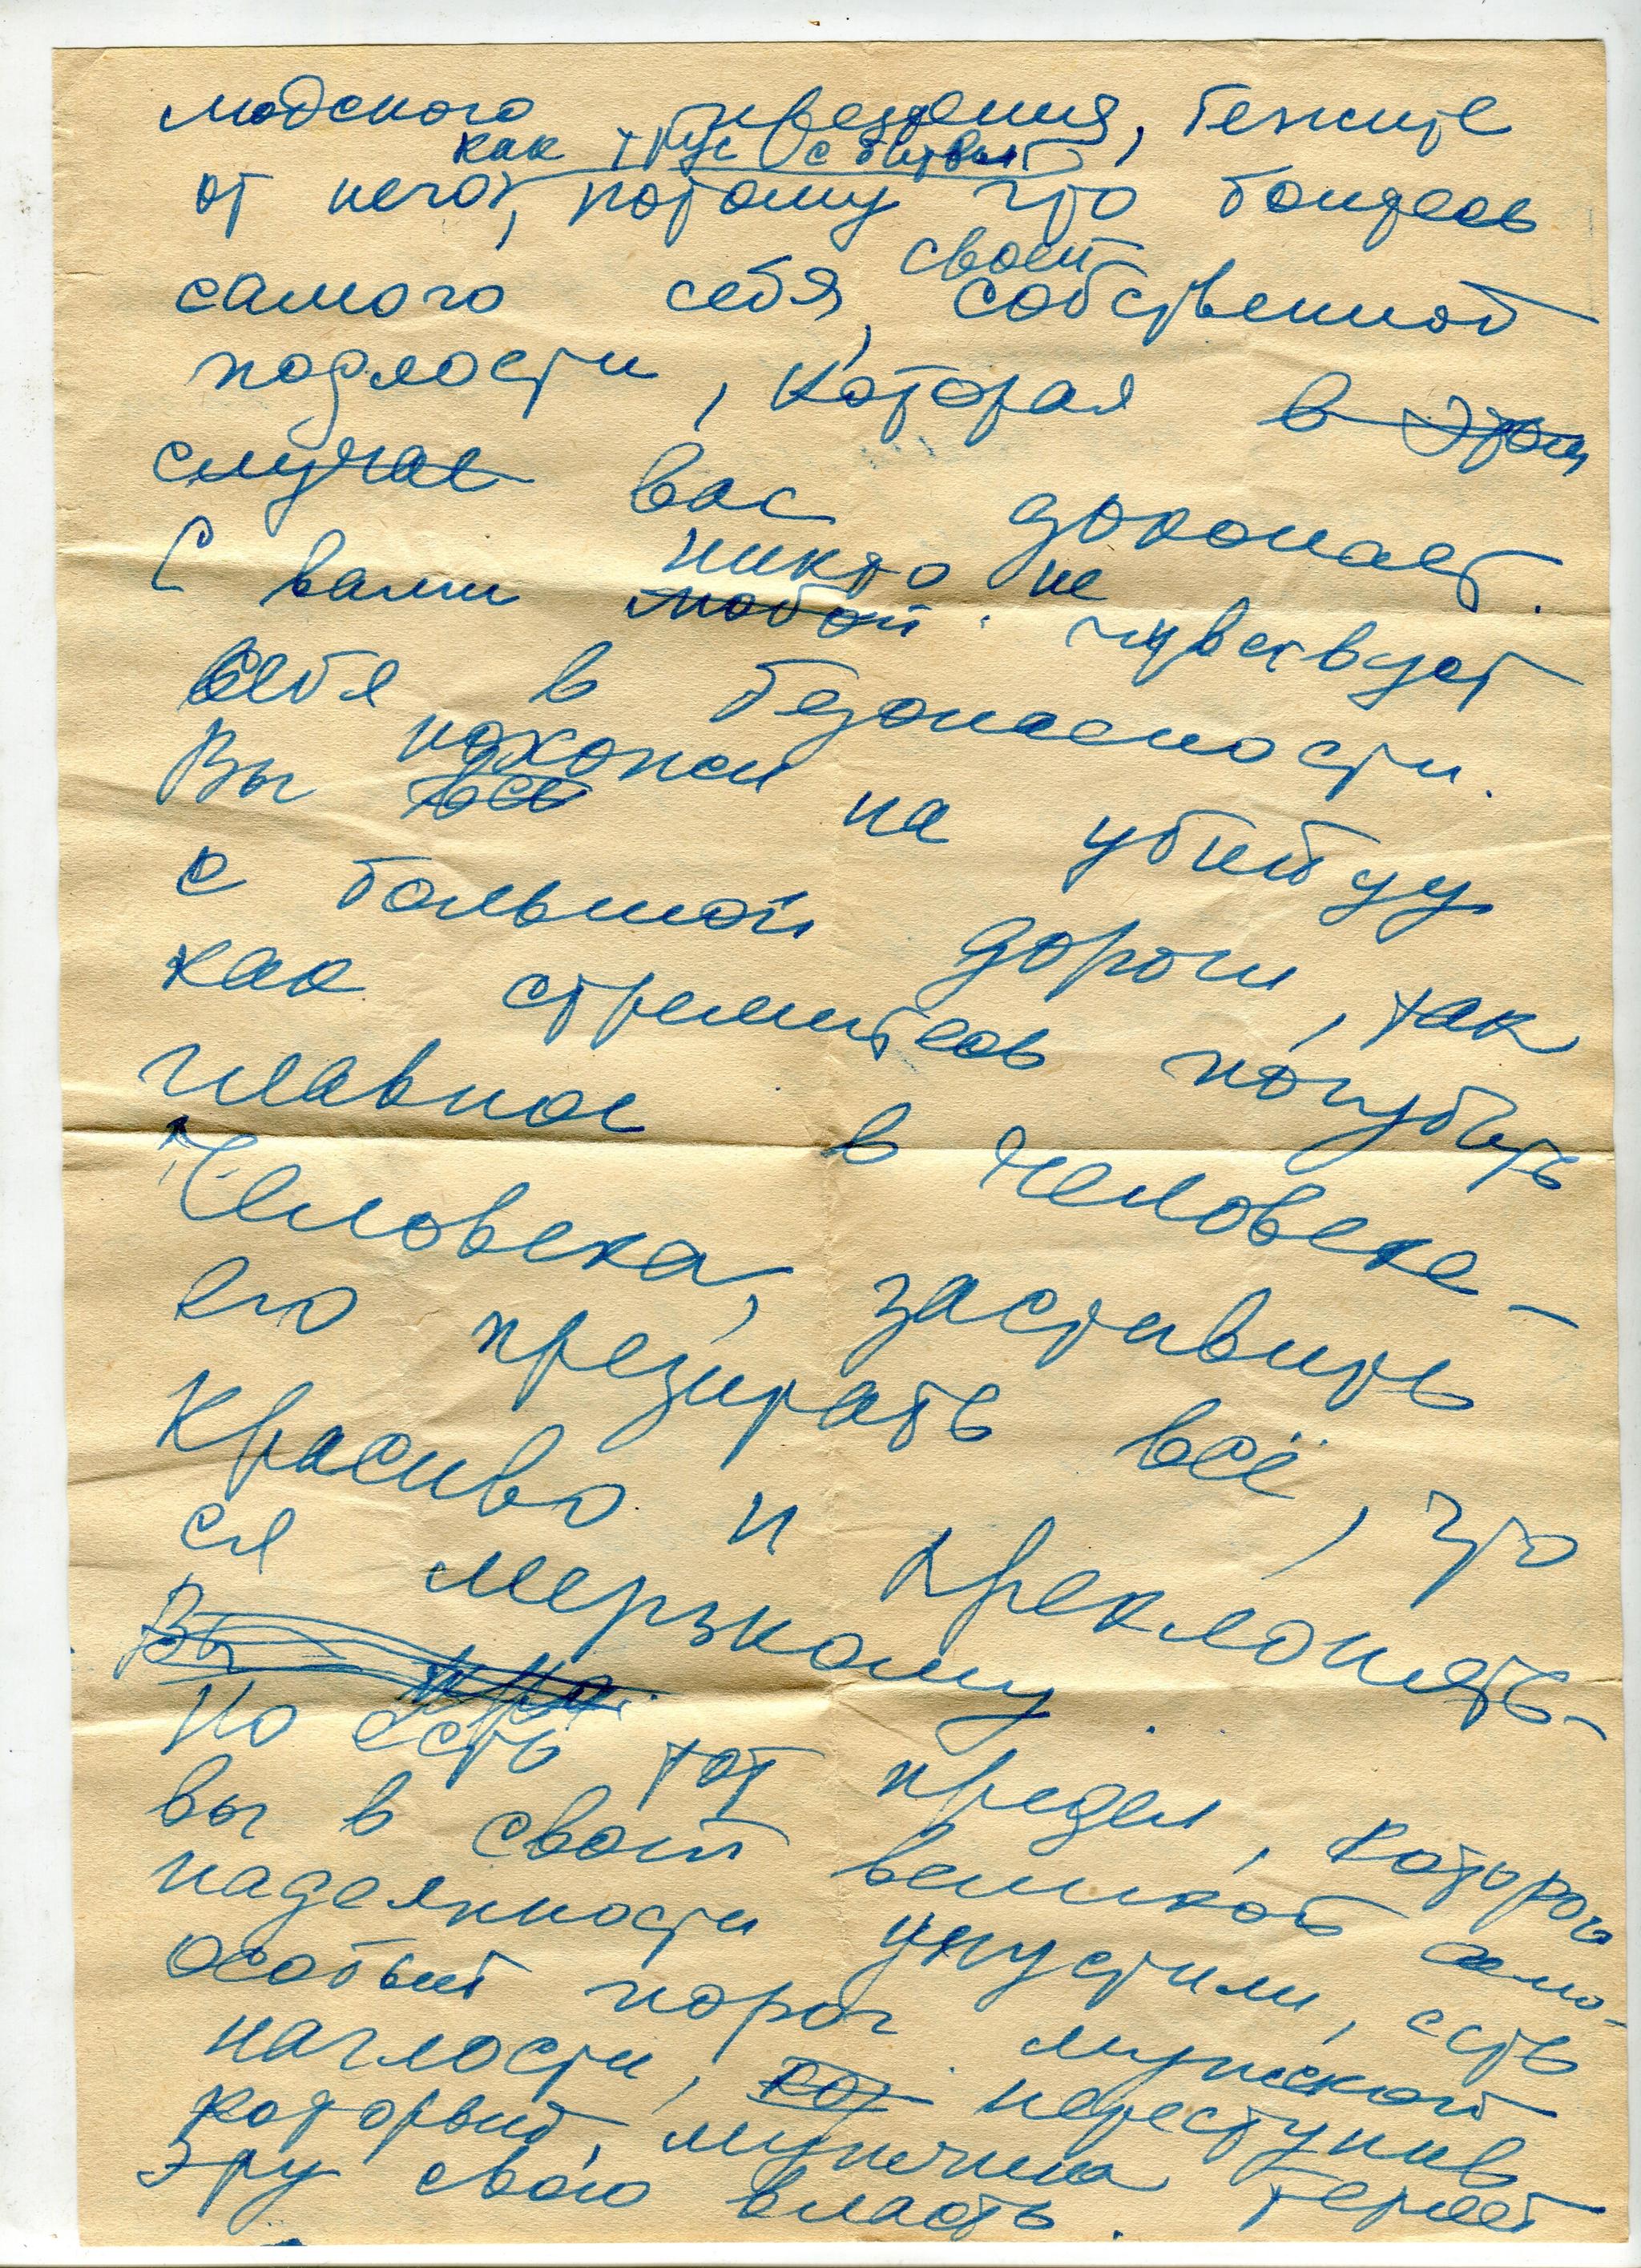 людского презрения, бежите
как трус с битвы
от него, потому что боитесь
своей
самого себя, собственной
подлости, которая в этом
случае вас доконает.
никто не
С вами любой чувствует
себя в безопасности.
похожи
Вы все на убийцу
с большой дороги, так
как стремитесь погубить
главное в человеке –
Человека, заставить
его презирать всё, что
красиво и преклонять-
ся мерзкому.
Вы
Но есть тот предел, которого
вы в своей великой само-
надеянности упустили, есть
особый порог мужской
наглости, кот переступив
который, мужчина теряет
эту свою власть.